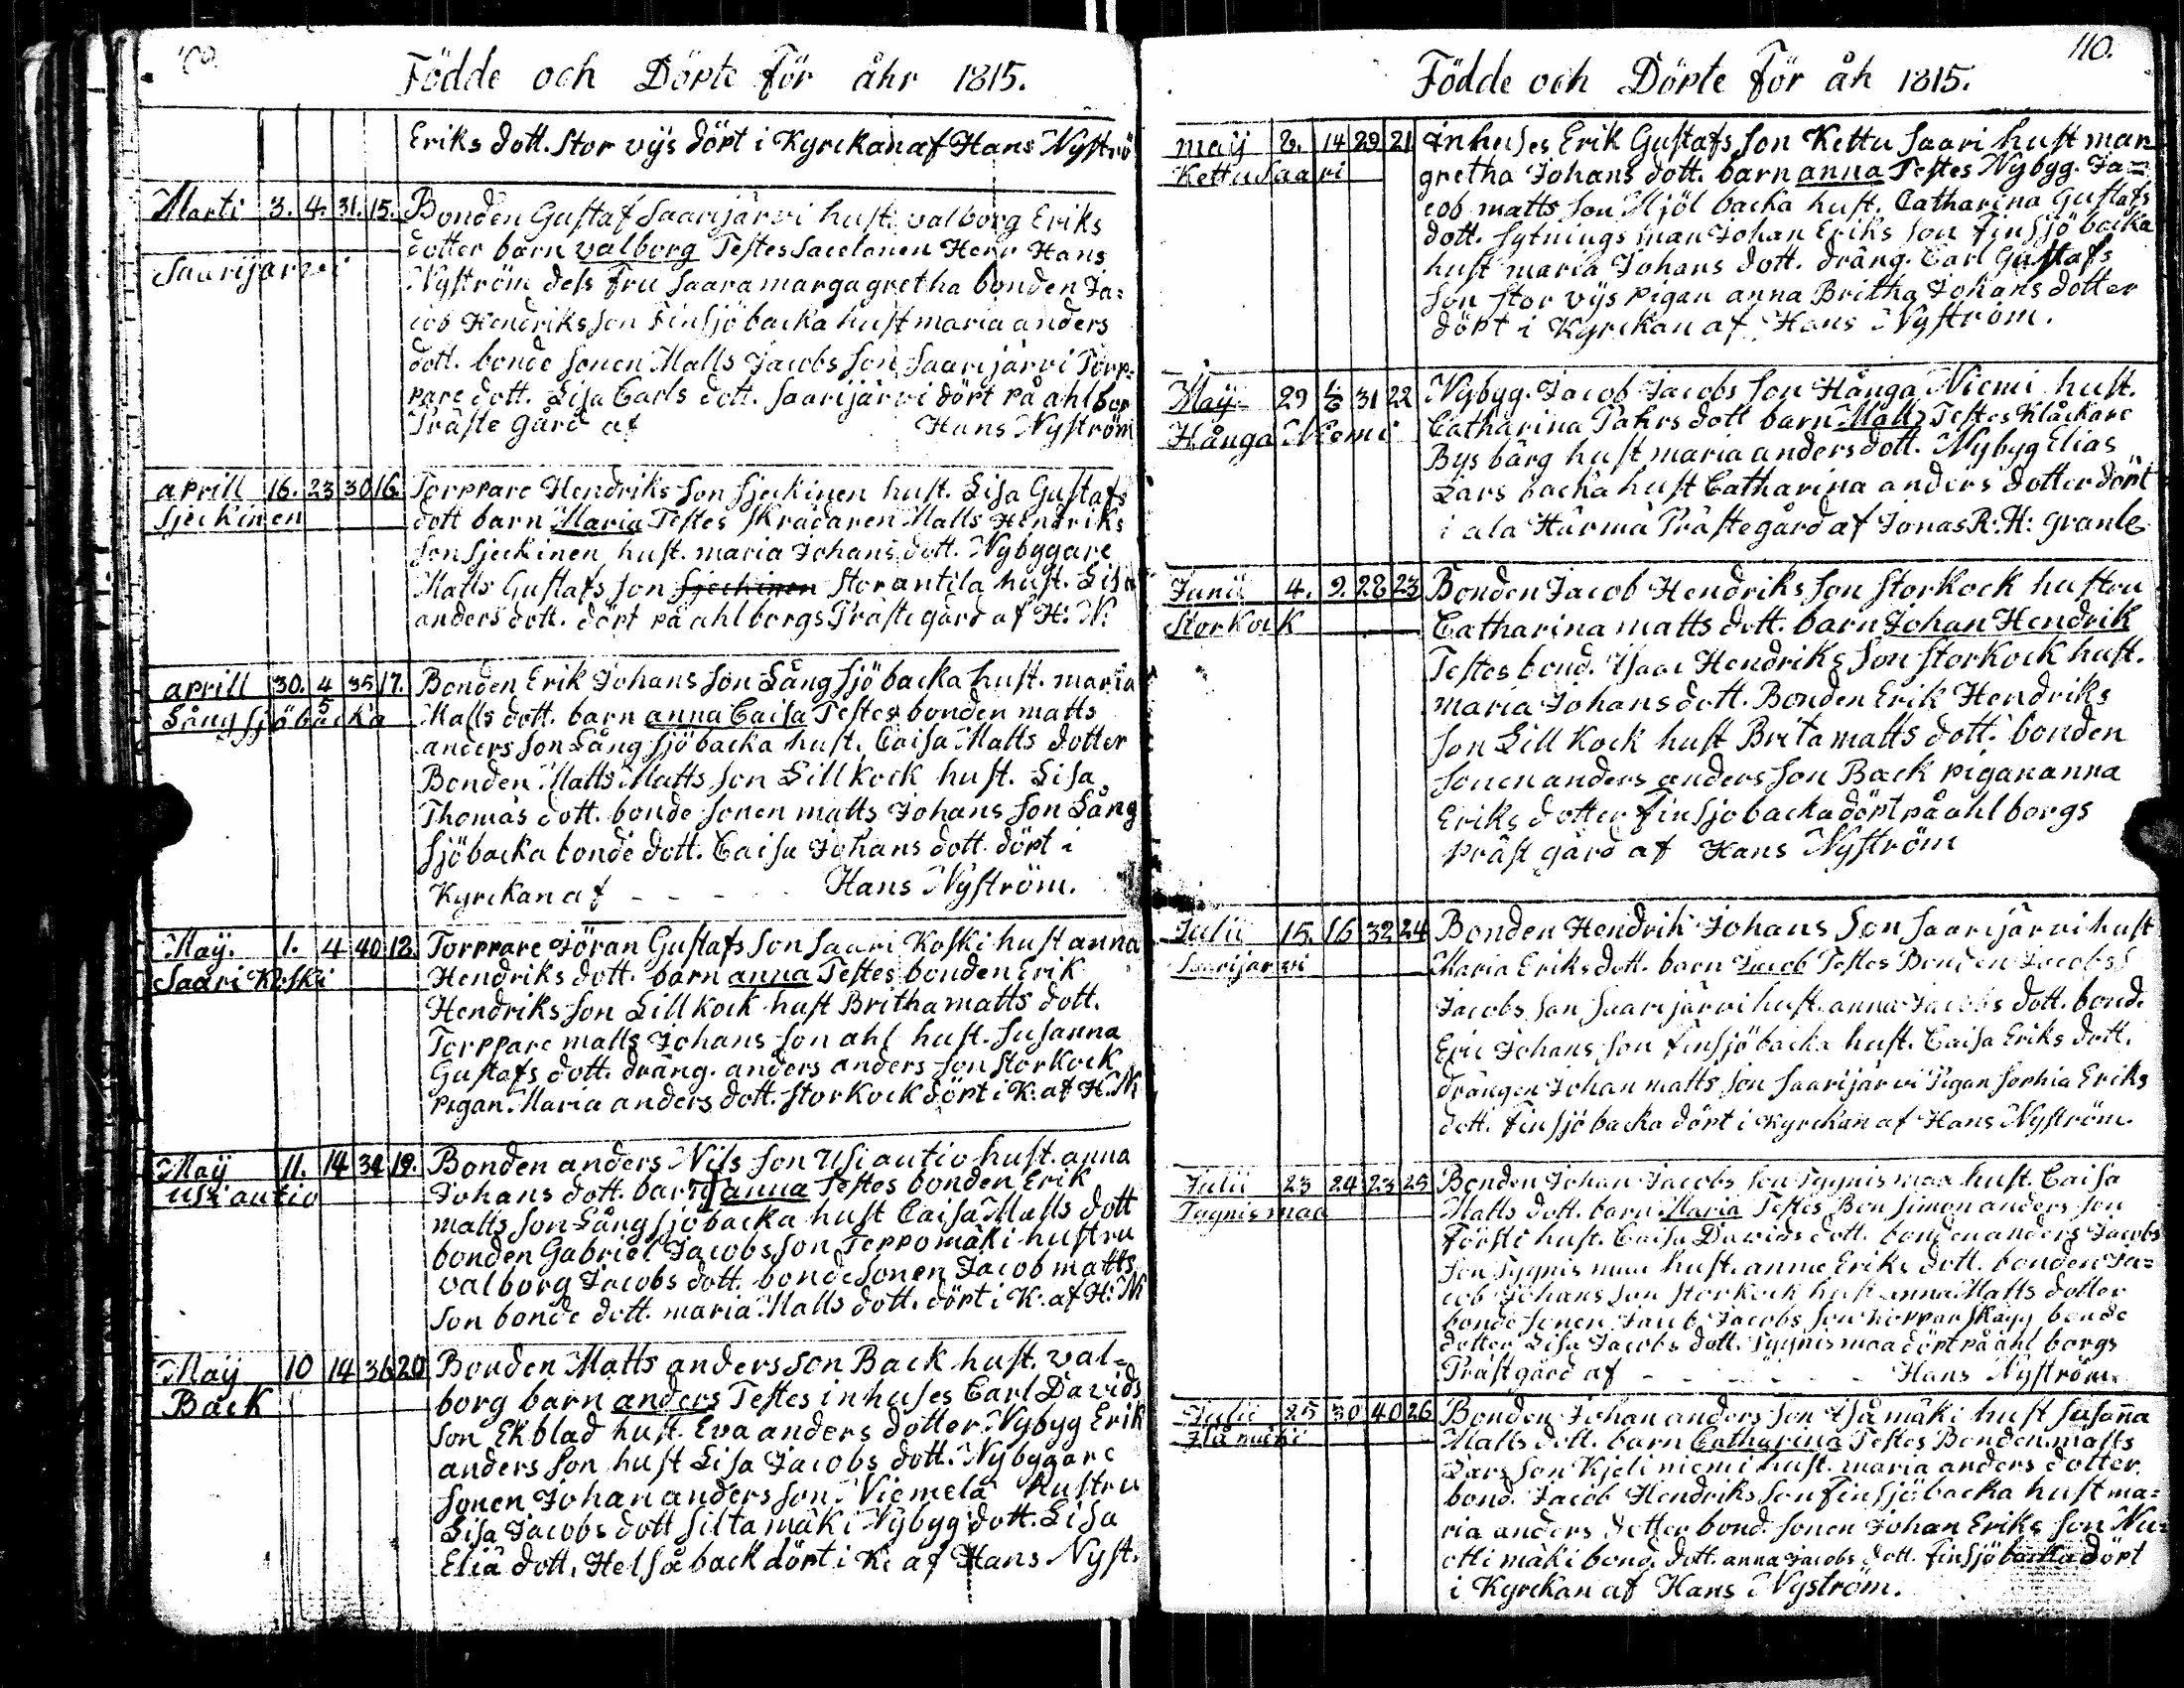 109.
Födde och Döpte för åhr 1815.
Eriks dott. Stor vÿs döpt i Kyrckan af Hans Nyströ
Marti 3. 4. 31. 15. Bonden Gustaf Saarijärvi hust. valborg Eriks
dotter barn valborg Testes Sacelanen Herr Hans
Saarijarvi
Nyström dess Fru Saara margagretha bonden Ja=
cob Hendriks Son Finsjöbacka hust maria anders
dott. bonde Sonen Matts Jacobs Son Saarijärvi Torp=
pare dott. Lisa Carls dott. Saarijärvi döpt på ahlbor
Präste gård af Hans Nyström
aprill 16. 23 30 16. Torppare Hendriks Son Sjeckinen hust. Lisa Gustafs
Sjeckinen dott barn Maria Testes Skradaren Matts Hendriks
Son Sjeckinen hust. maria Johans dott. Nybyggare
Matts Gustafs Son Sjeckinen Storantila hust. Lisa
anders dott. döpt på ahlborgs Präste gård af H: N.
aprill 30. 4/5 35 17. Bonden Erik Johans Son Lång sjö backa hust. maria
Lång sjöbacka Matts dott. barn anna Caisa Testes bonden matts
anders Son Lång sjö backa hust. Caisa Matts dotter
Bonden Matts Matts Son Lill kock hust. Lisa
Thomas dott. bonde Sonen matts Johans Son Lång
sjöbacka bonde dott. Caisa Johans dott. döpt i
Kyrckan af - - - Hans Nyström.
Maÿ. 1. 4 40 18. Torppare Jöran Gustafs Son Saari Koski hust anna
Saari Koski Hendriks dott. barn anna Testes bonden Erik
Hendriks Son Lill kock hust Britha matts dott.
Torppare matts Johans Son ahl hust. Susanna
Gustafs dott. dräng. anders anders Son Storkock
pigan Maria anders dott. Storkock döpt i K. af H. N
Maÿ 11. 14 34 19. Bonden anders Nils Son Usi autio hust. anna
Usi autio Johans dott. barn anna Testes bonden Erik
matts Son Lång sjöbacka hust Caisa Matts dott
bonden Gabriel Jacobs Son Teppo mäki hustru
valborg Jacobs dott. bonde Sonen Jacob matts
Son bonde dott. maria Matts dott. döpt i K. af H: N
Maÿ 10 14 36 20 Bonden Matts anders Son Back hust. val=
Back borg barn anders Testes inhuses Carl Davids
Son Ekblad hust. Eva anders dotter Nybyg Erik
anders Son hust Lisa Jacobs dott. Nybygare
Sonen Johan anders Son Niemela hustru
Lisa Jacobs dott Silta mäki Nybyg dott. Lisa
Elia dott. Helsåback döpt i K: af Hans Nyst.
110.
Födde och Döpte för åh 1815.
maÿ 2. 14 29 21 Inhuses Erik Gustafs Son Kettu Saari hust mar
Kettu Saari gretha Johans dott. barn anna Testes Nybyg. Ja=
cob matts Son Mjöl backa hust. Catharina Gustafs
dott. Sytnings man Johan Eriks Son Finsjö backa
hust maria Johans dott. dräng. Carl Gustafs
Son Stor vÿs pigan anna Britha Johans dotter
döpt i Kyrckan af Hans Nyström.
Maÿ 29 1/6 31 22 Nybyg. Jacob Jacobs Son Hånga Niemi hust.
Hånga Niemi Catharina Pahrs dott barn Matts Testes Klåckare
Bys bärg hust maria anders dott. Nybyg Elias
Lars backa hust Catharina anders dotter döpt
i ala Härmä Prästegård af Jonas R. H: Granle
Junii 4. 9. 28 23 Bonden Jacob Hendriks Son Storkock hustru
Storkock Catharina matts dott. barn Johan Hendrik
Testes bond. Isaac Hendriks Son Storkock hust.
maria Johans dott. Bonden Erik Hendriks
Son Lill kock hust Brita matts dott. bonden
Sonen anders anders Son Back pigan anna
Eriks dotter Finsjobacka döpt på ahlborgs
Präst gård af Hans Nyström
Julii 15. 16 32 24 Bonden Hendrik Johans Son Saarijärvi hust
Saarijarvi Maria Eriks dott. barn Jacob Testes Bonden Jacobs
Jacobs Son Saarijärvi hust. anna Jacobs dott. bond.
Eric Johans Son Finsjöbacka hust. Caisa Eriks dott.
drängen Johan matts Son Saarijärvi Pigan Sophia Eriks
dott. Finsjöbacka döpt i Kyrckan af Hans Nyström.
Julii 23 24 23 25 Bonden Johan Jacobs Son Tygnismaa hust. Caisa
Tygnismaa Matts dott. barn Maria Testes Bon Simon anders Son
Försti hust. Caisa Davids dott. bonden anders Jacobs
Son Tygnis maa hust. anna Eriks dott. bonden Ja=
cob Johans Son Storkock hust anna Matts dotter
bonde Sonen Jacob Jacobs Son Kopparskägg bonde
dotter Lisa Jacobs dott. Tygnismaa döpt på ahl borgs
Prästgård af - - - Hans Nyström
Julii 25 30 40 26 Bonden Johan anders Son Iså mäki hust Susaña
Iså mäki Matts dott. barn Catharina Testes Bonden matts
Lars Son Kjeli niemi hust. maria anders dotter.
bond. Jacob Hendriks Son Finsjö backa hust ma=
ria anders dotter bond. Sonen Johan Eriks Son Nu=
otti mäki bond. dott. anna Jacobs dott. Finsjöbacka döpt
i Kyrckan af Hans Nyström.